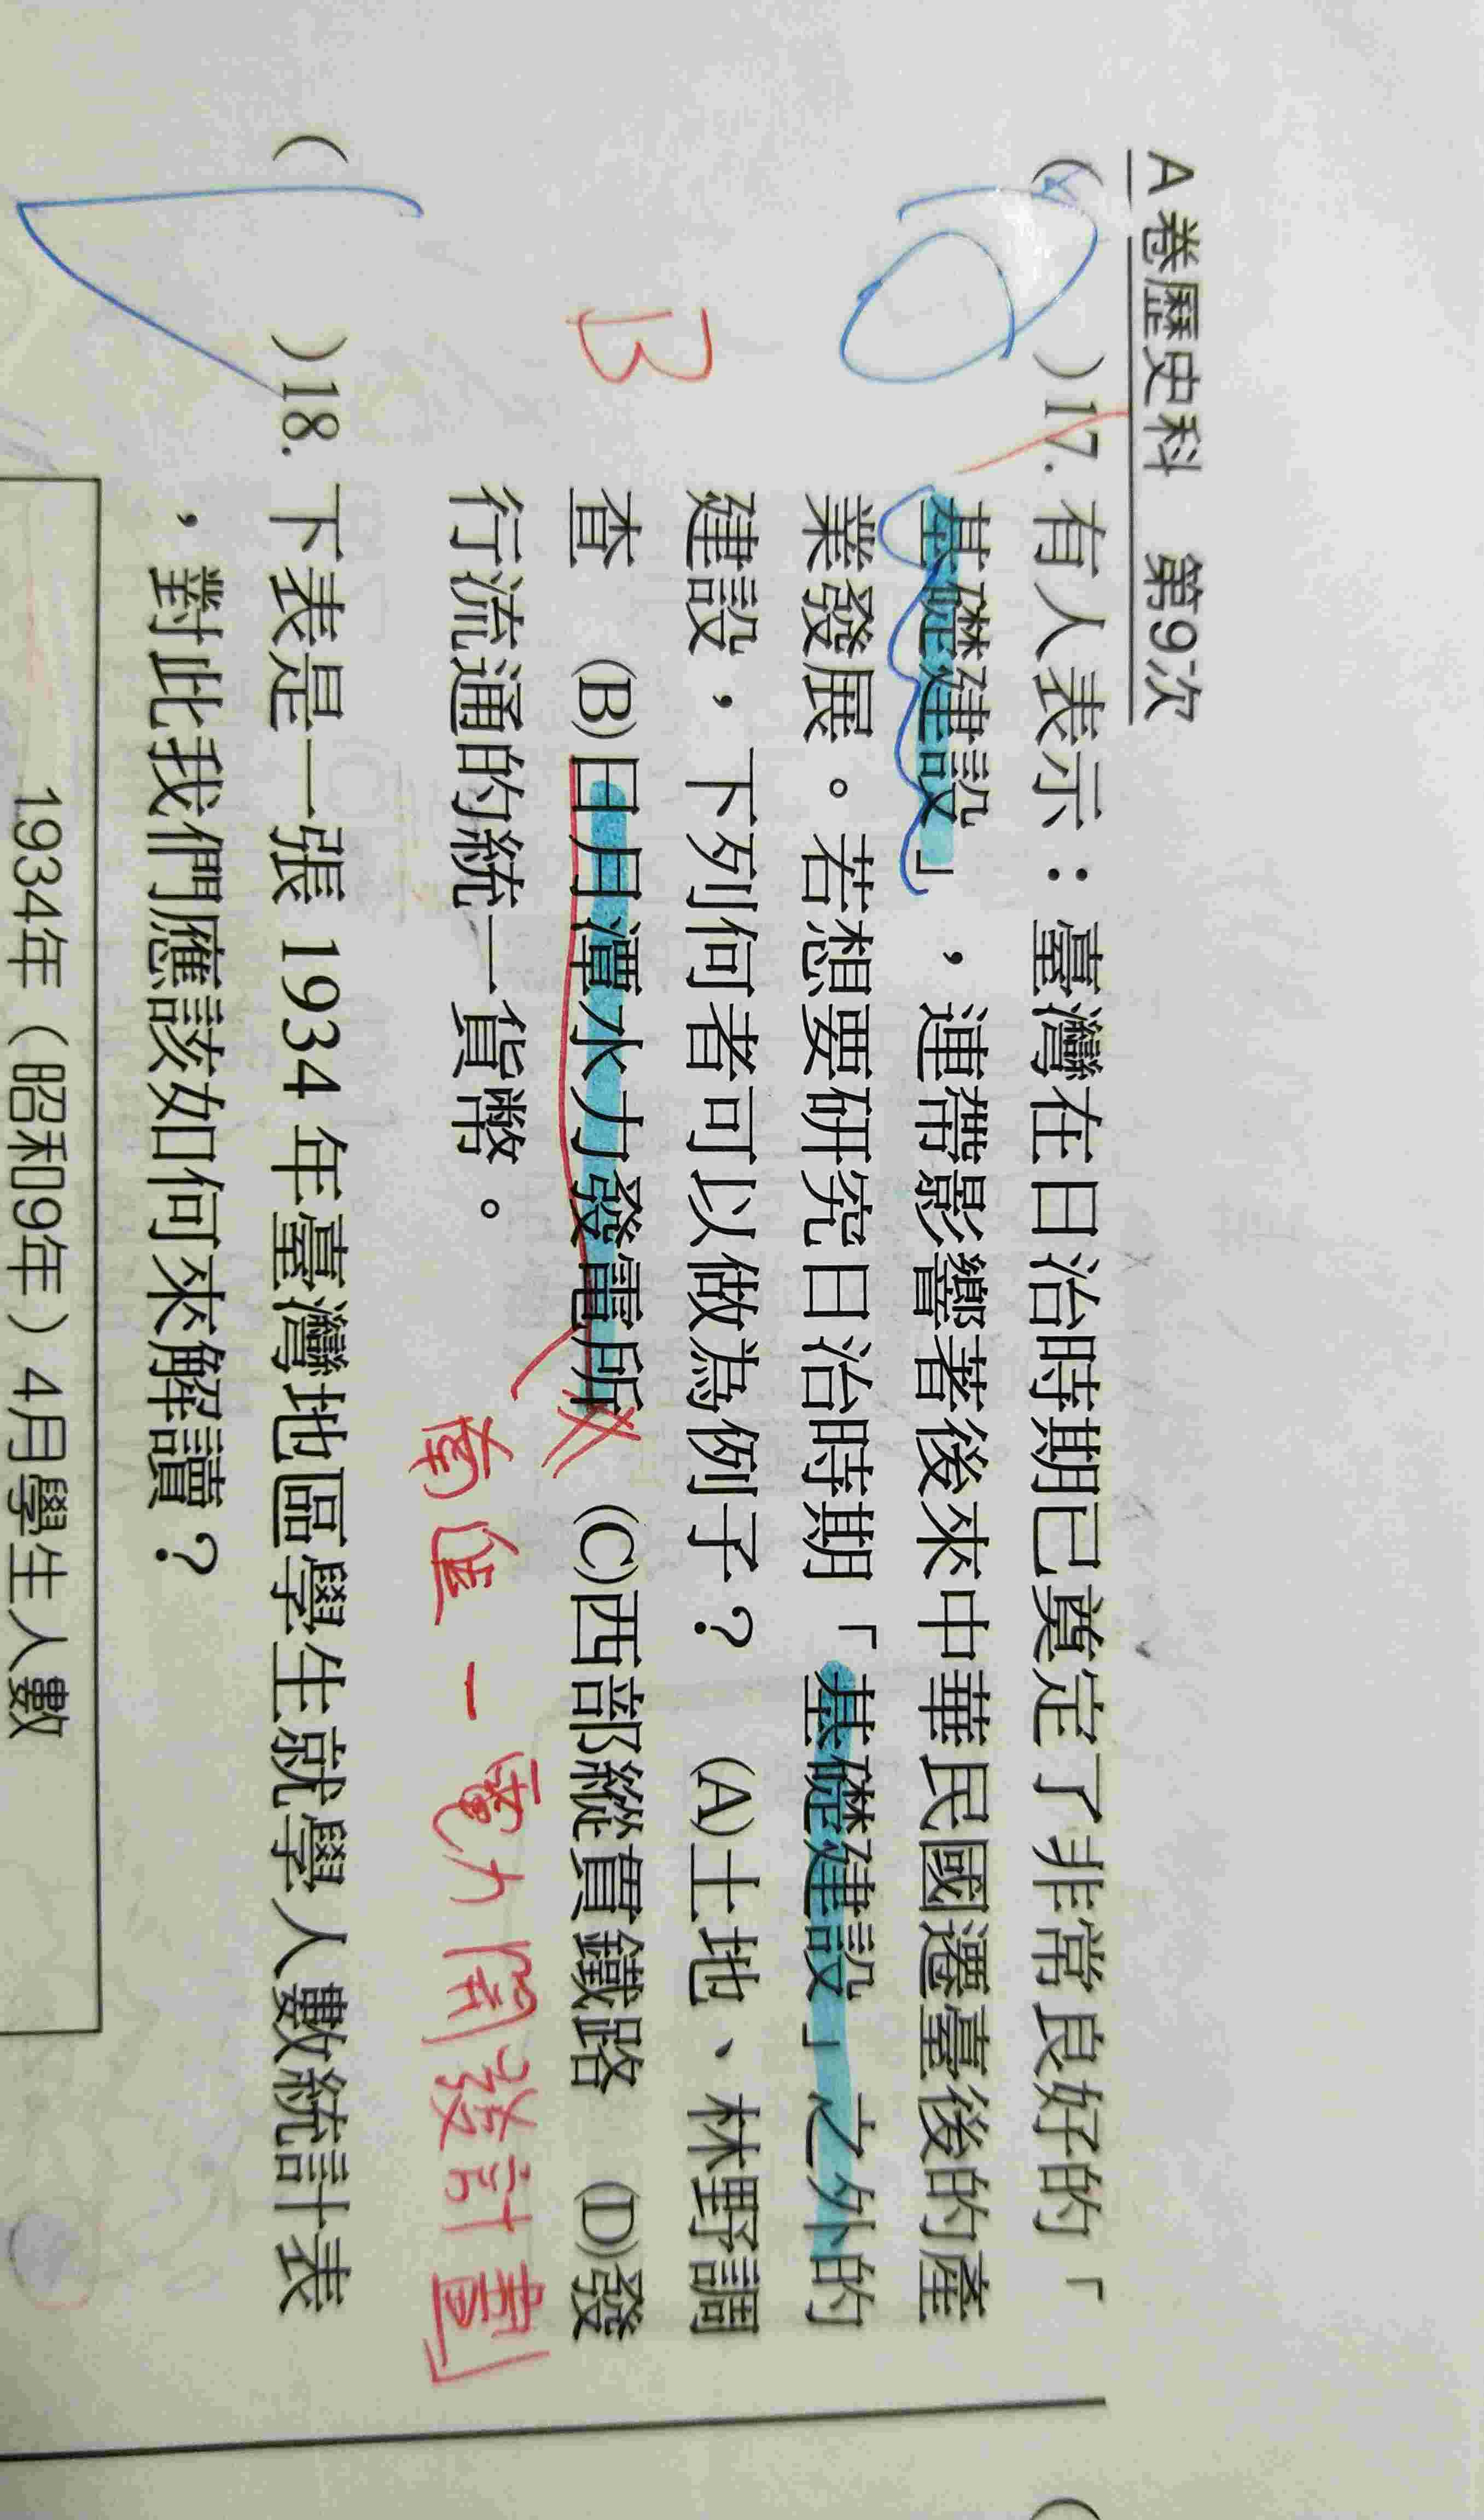 A卷歷史科 第9次
( )17. 有人表示：臺灣在日治時期已奠定了非常良好的「
基礎建設」，連帶影響著後來中華民國遷臺後的產
業發展。若想要研究日治時期「基礎建設」之外的
建設，下列何者可以做為例子？ (A)土地、林野調
B
查 (B)日月潭水力發電所 (C)西部縱貫鐵路 (D)發
行流通的統一貨幣。
電力開發計畫
( )18. 下表是一張 1934 年臺灣地區學生就學人數統計表
，對此我們應該如何來解讀？
1934年（昭和9年）4月學生人數